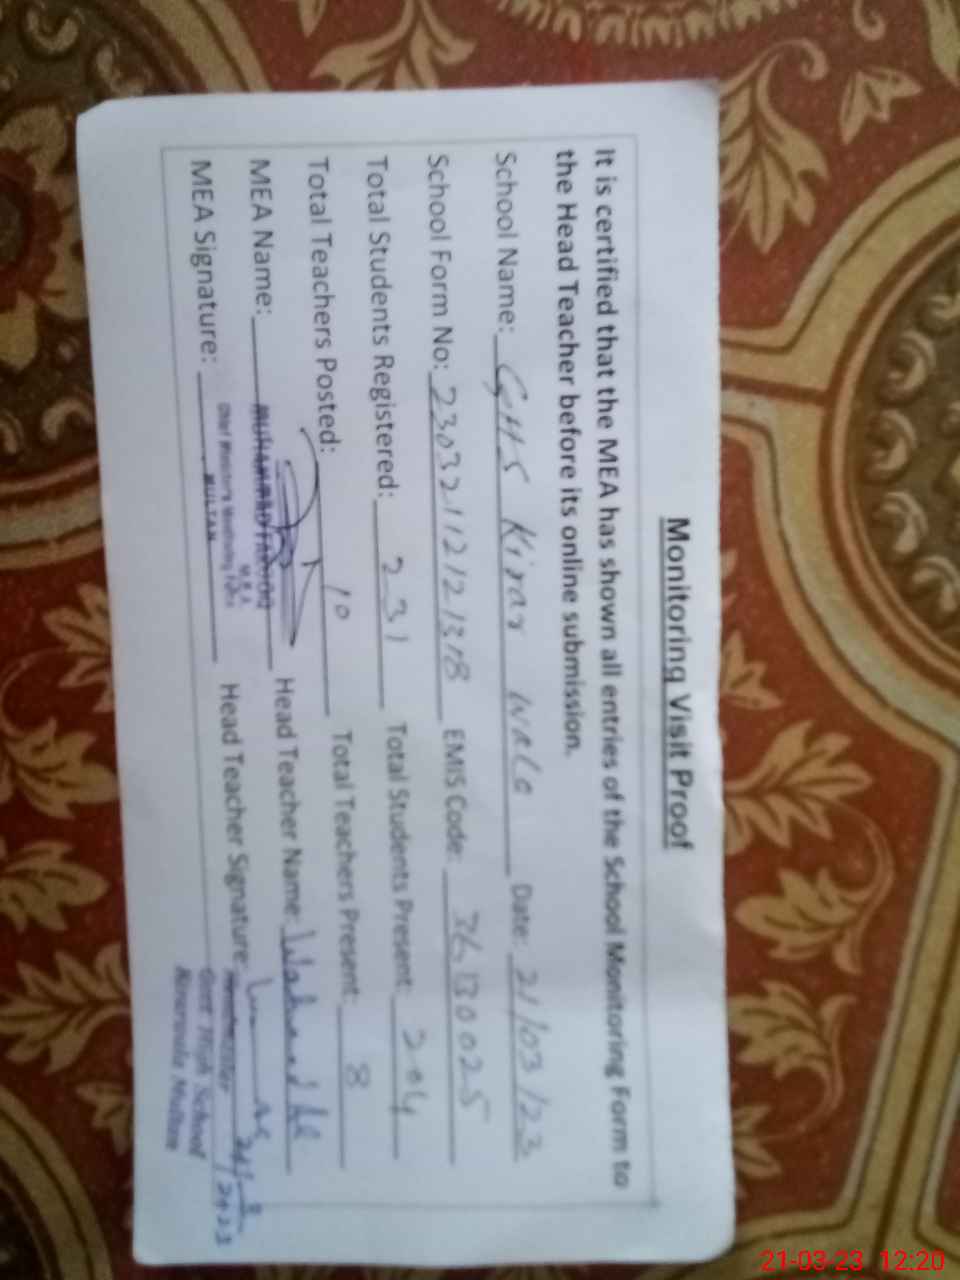 Monitoring Visit Proof
It is certified that the MEA has shown all entries of the School Monitoring Form to
the Head Teacher before its online submission.
School Name: GHS Kirar Wala Date: 21/03/23
School Form No: 23032112121318 EMIS Code: 36130025
Total Students Registered: 231 Total Students Present: 204
Total Teachers Posted: 10 Total Teachers Present: 8
MEA Name: MUHAMMAD FAROOQ Head Teacher Name:
M.E.A
Chief Minister's Monitoring Force
MEA Signature: MULTAN Head Teacher Signature:
Headmaster
Govt High School
Multan
2023
21-03-23 12:20